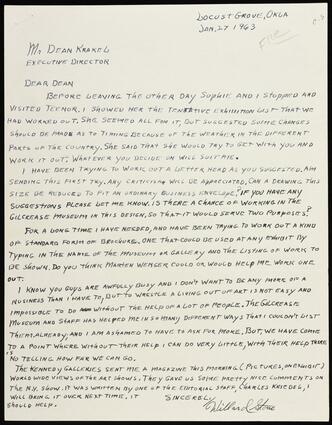 LOCUST GROVE, OKLA
JAN, 27 1963
FILE
MR DEAN KRAKEL
EXECUTIVE DIRECTOR
DEAR DEAN
BEFORE LEAVING THE OTHER DAY SOPHIE AND I STOPPED AND
VISITED TEENOR. I SHOWED HER THE TENTATIVE EXHIBITION LIST THAT WE
HAD WORKED OUT. SHE SEEMED ALL FOR IT, BUT SUGGESTED SOME CHANGES
SHOULD BE MADE AS TO TIMING BECAUSE OF THE WEATHER IN THE DIFFERENT
PARTS OF THE COUNTRY. SHE SAID THAT SHE WOULD TRY TO GET WITH YOU AND
WORK IT OUT, WHATEVER YOU DECIDE ON WILL SUIT ME.
I HAVE BEEN TRYING TO WORK OUT A LETTER HEAD AS YOU SUGGESTED, AM
SENDING THIS FIRST TRY. ANY CRITICISM WILL BE APPRECIATED, CAN A DRAWING THIS
SIZE BE REDUCED TO FIT AN ORDINARY BUSINESS ENVELOPE, IF YOU HAVE ANY
SUGGESTIONS PLEASE LET ME KNOW. IS THERE A CHANCE OF WORKING IN THE
GILCREASE MUSEUM IN THIS DESIGN, SO THAT IT WOULD SERVE TWO PURPOSES?
FOR A LONG TIME I HAVE NEEDED, AND HAVE BEEN TRYING TO WORK OUT A KIND
OF STANDARD FORM OF BROCHURE, ONE THAT COULD BE USED AT ANY EXHIBIT BY
TYPING IN THE NAME OF THE MUSEUM OR GALLERY AND THE LISTING OF WORK TO
BE SHOWN. DO YOU THINK MARTIN WENGER COULD OR WOULD HELP ME WORK ONE
OUT.
I KNOW YOU GUYS ARE AWFULLY BUSY AND I DON'T WANT TO BE ANY MORE OF A
NUISANCE THAN I HAVE TO, BUT TO WRESTLE A LIVING OUT OF ART IS NOT EASY AND
IMPOSSIBLE TO DO WITHOUT THE HELP OF A LOT OF PEOPLE. THE GILCREASE
MUSEUM AND STAFF HAS HELPED ME IN SO MANY DIFFERENT WAYS THAT I COULDN'T LIST
THEM, ALREADY, AND I AM ASHAMED TO HAVE TO ASK FOR MORE, BUT, WE HAVE COME
TO A POINT WHERE WITHOUT THEIR HELP I CAN DO VERY LITTLE, WITH THEIR HELP THERE
IS
NO TELLING HOW FAR WE CAN GO.
THE KENNEDY GALLERIES SENT ME A MAGAZINE THIS MORNING (PICTURES, ON EXHIBIT)
WORLD WIDE VIEWS OF THE ART SHOWS. THEY GAVE US SOME PRETTY NICE COMMENTS ON
THE N.Y. SHOW. IT WAS WRITTEN BY ONE OF THE EDITORIAL STAFF, CHARLES KRIEBEL, I
WILL BRING IT OVER NEXT TIME, IT
SHOULD HELP.
SINCERELY
Willard Stone